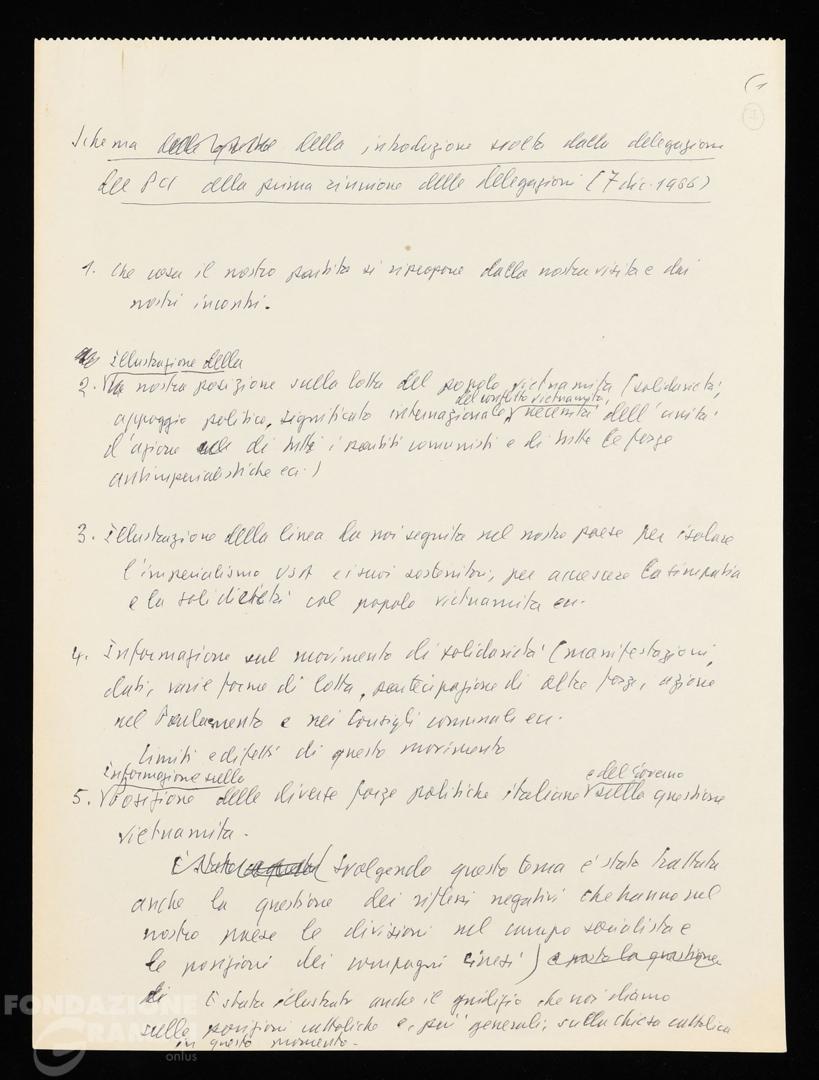 (1
1
Schema della introduzione svolta dalla delegazione
del PCI della prima riunione delle delegazioni (7 dic. 1966)
1. Che cosa il nostro partito si ripropone dalla nostra visita e dai
nostri incontri.
Illustrazione della
2. nostra posizione sulla lotta del popolo vietnamita (solidarietà,
del conflitto vietnamita,
appoggio politico, significato internazionale necessità dell'unità
d'azione di tutti i partiti comunisti e di tutte le forze
antimperialistiche ecc.)
3. Illustrazione della linea da noi seguita nel nostro paese per isolare
l'imperialismo USA e i suoi sostenitori, per accrescere la simpatia
e la solidarietà col popolo vietnamita ecc.
4. Informazione sul movimento di solidarietà (manifestazioni,
dati, varie forme di lotta, partecipazione di altre forze, azione
nel Parlamento e nei Consigli comunali ecc.
Limiti e difetti di questo movimento
Informazione sulla
e del Governo
5. Posizione delle diverse forze politiche italiane sulla questione
vietnamita.
(Svolgendo questo tema è stata trattata
anche la questione dei riflessi negativi che hanno nel
nostro paese le divisioni nel campo socialista e
le posizioni dei compagni cinesi) e posta la questione
di È stato illustrato anche il giudizio che noi diamo
sulle posizioni cattoliche e, più generali, sulla chiesa cattolica
in questo momento.
FONDAZIONE
GRAMSCI
onlus